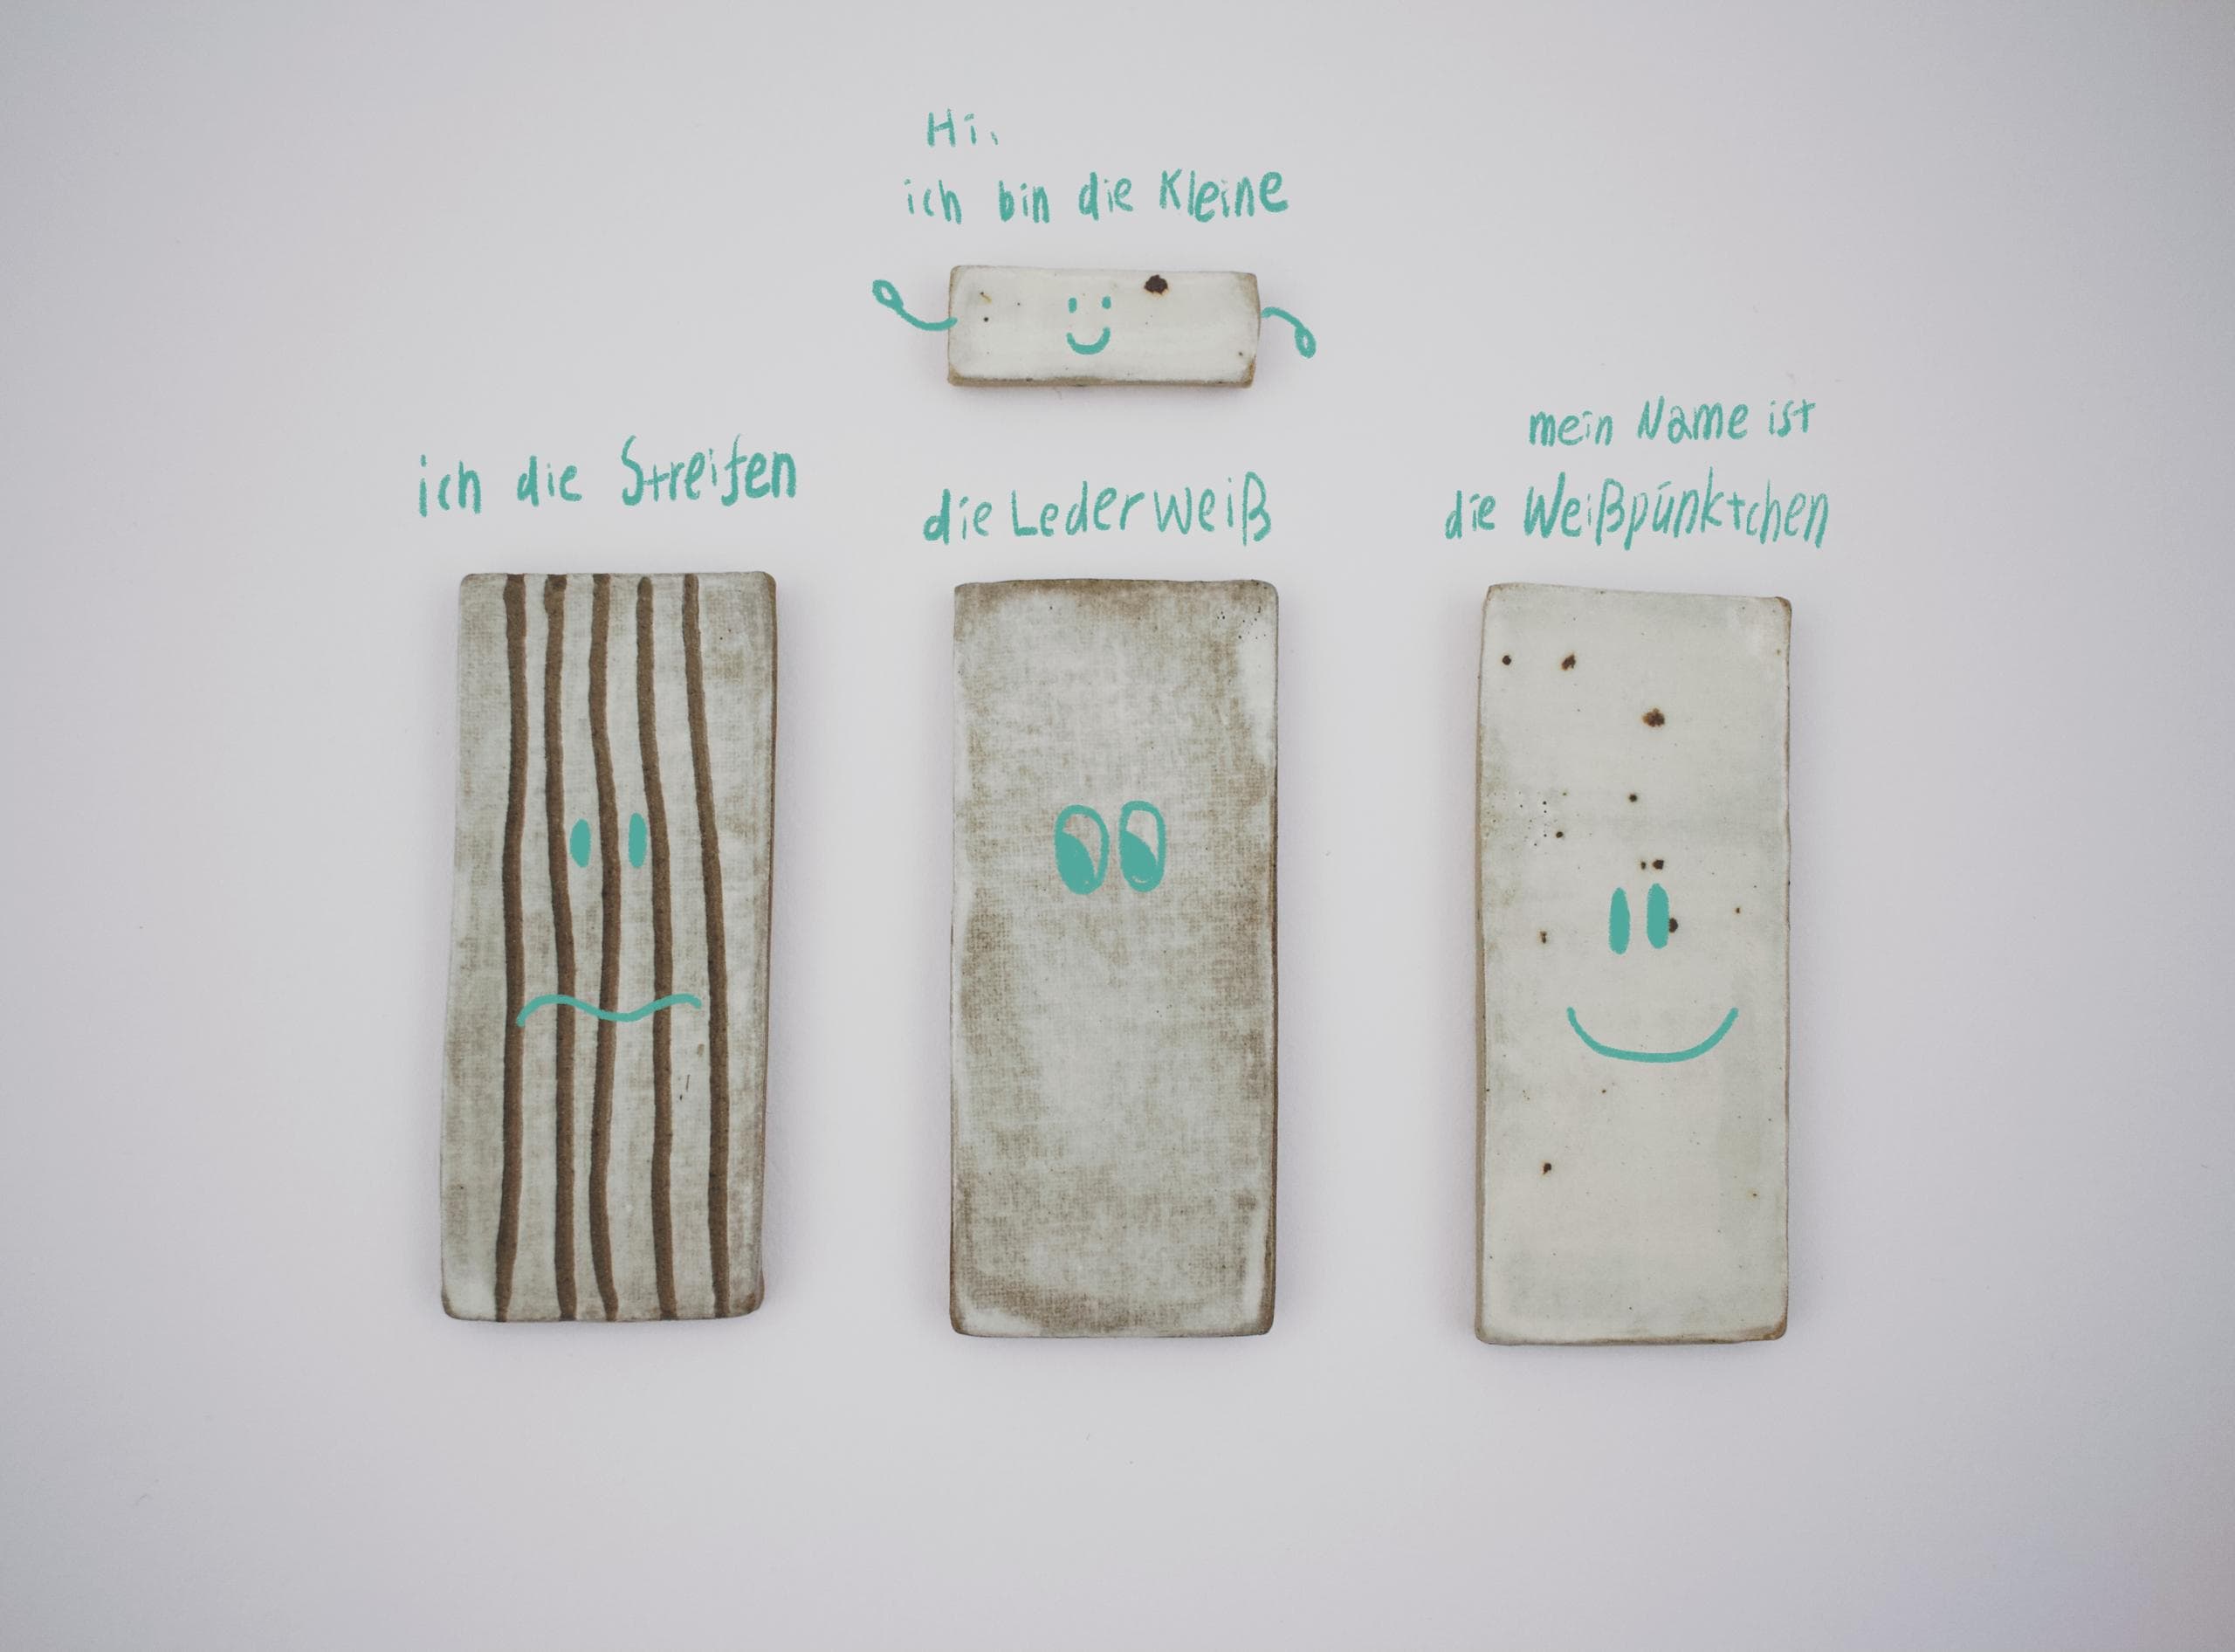 Hi,
ich bin die Kleine
ich die Streifen
die Lederweiß
mein Name ist
die Weißpünktchen